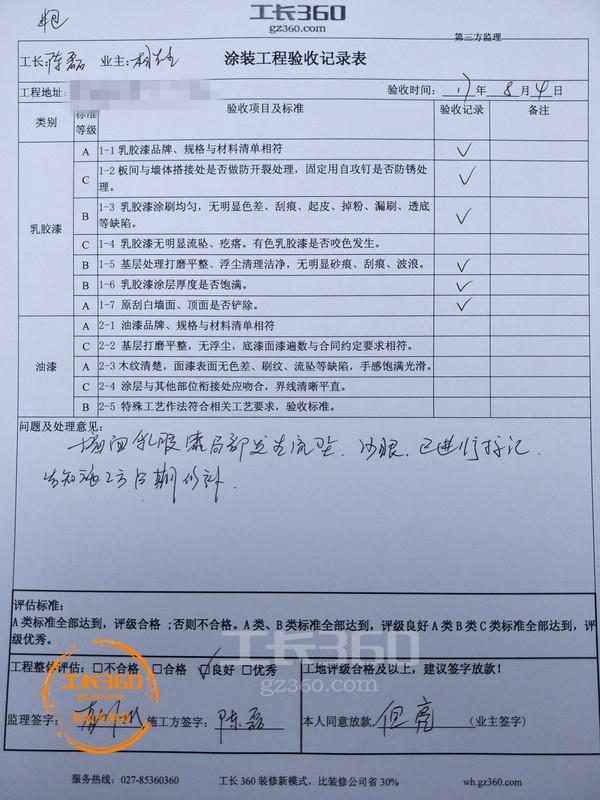 工长360
gz360.com
第三方监理
工长:陈磊 业主:
涂装工程验收记录表
工程地址: 验收时间: 17年 8月 4日
类别 标准等级 验收项目及标准 验收记录 备注
乳胶漆
A 1-1 乳胶漆品牌、规格与材料清单相符 ✓
C 1-2 板间与墙体搭接处是否做防开裂处理，固定用自攻钉是否防锈处
理。 ✓
B 1-3 乳胶漆涂刷均匀，无明显色差、刮痕、起皮、掉粉、漏刷、透底
等缺陷。 ✓
C 1-4 乳胶漆无明显流坠、疙瘩。有色乳胶漆是否咬色发生。
B 1-5 基层处理打磨平整、浮尘清理洁净，无明显砂痕、刮痕、波浪。 ✓
B 1-6 乳胶漆涂层厚度是否饱满。 ✓
A 1-7 原刮白墙面、顶面是否铲除。 ✓
油漆
A 2-1 油漆品牌、规格与材料清单相符
C 2-2 基层打磨平整，无浮尘，底漆面漆遍数与合同约定要求相符。
A 2-3 木纹清楚，面漆表面无色差、刷纹、流坠等缺陷，手感饱满光滑。
C 2-4 涂层与其他部位衔接处应吻合，界线清晰平直。
B 2-5 特殊工艺作法符合相关工艺要求，验收标准。
问题及处理意见:
墙面乳胶漆局部发生流坠、沙眼、已进行标记、
告知施工方后期修补.
评估标准:
A类标准全部达到，评级合格 ;否则不合格。A类、B类标准全部达到，评级良好 A类B类C类标准全部达到，评
级优秀。
工长360
gz360.com
工程整体评估: □不合格 □合格 ☑良好 □优秀 工地评级合格及以上，建议签字放款！
工长360
监理签字: 施工方签字: 陈磊 本人同意放款, 但亮 (业主签字)
服务热线: 027-85360360 工长 360 装修新模式，比装修公司省 30% wh.gz360.com